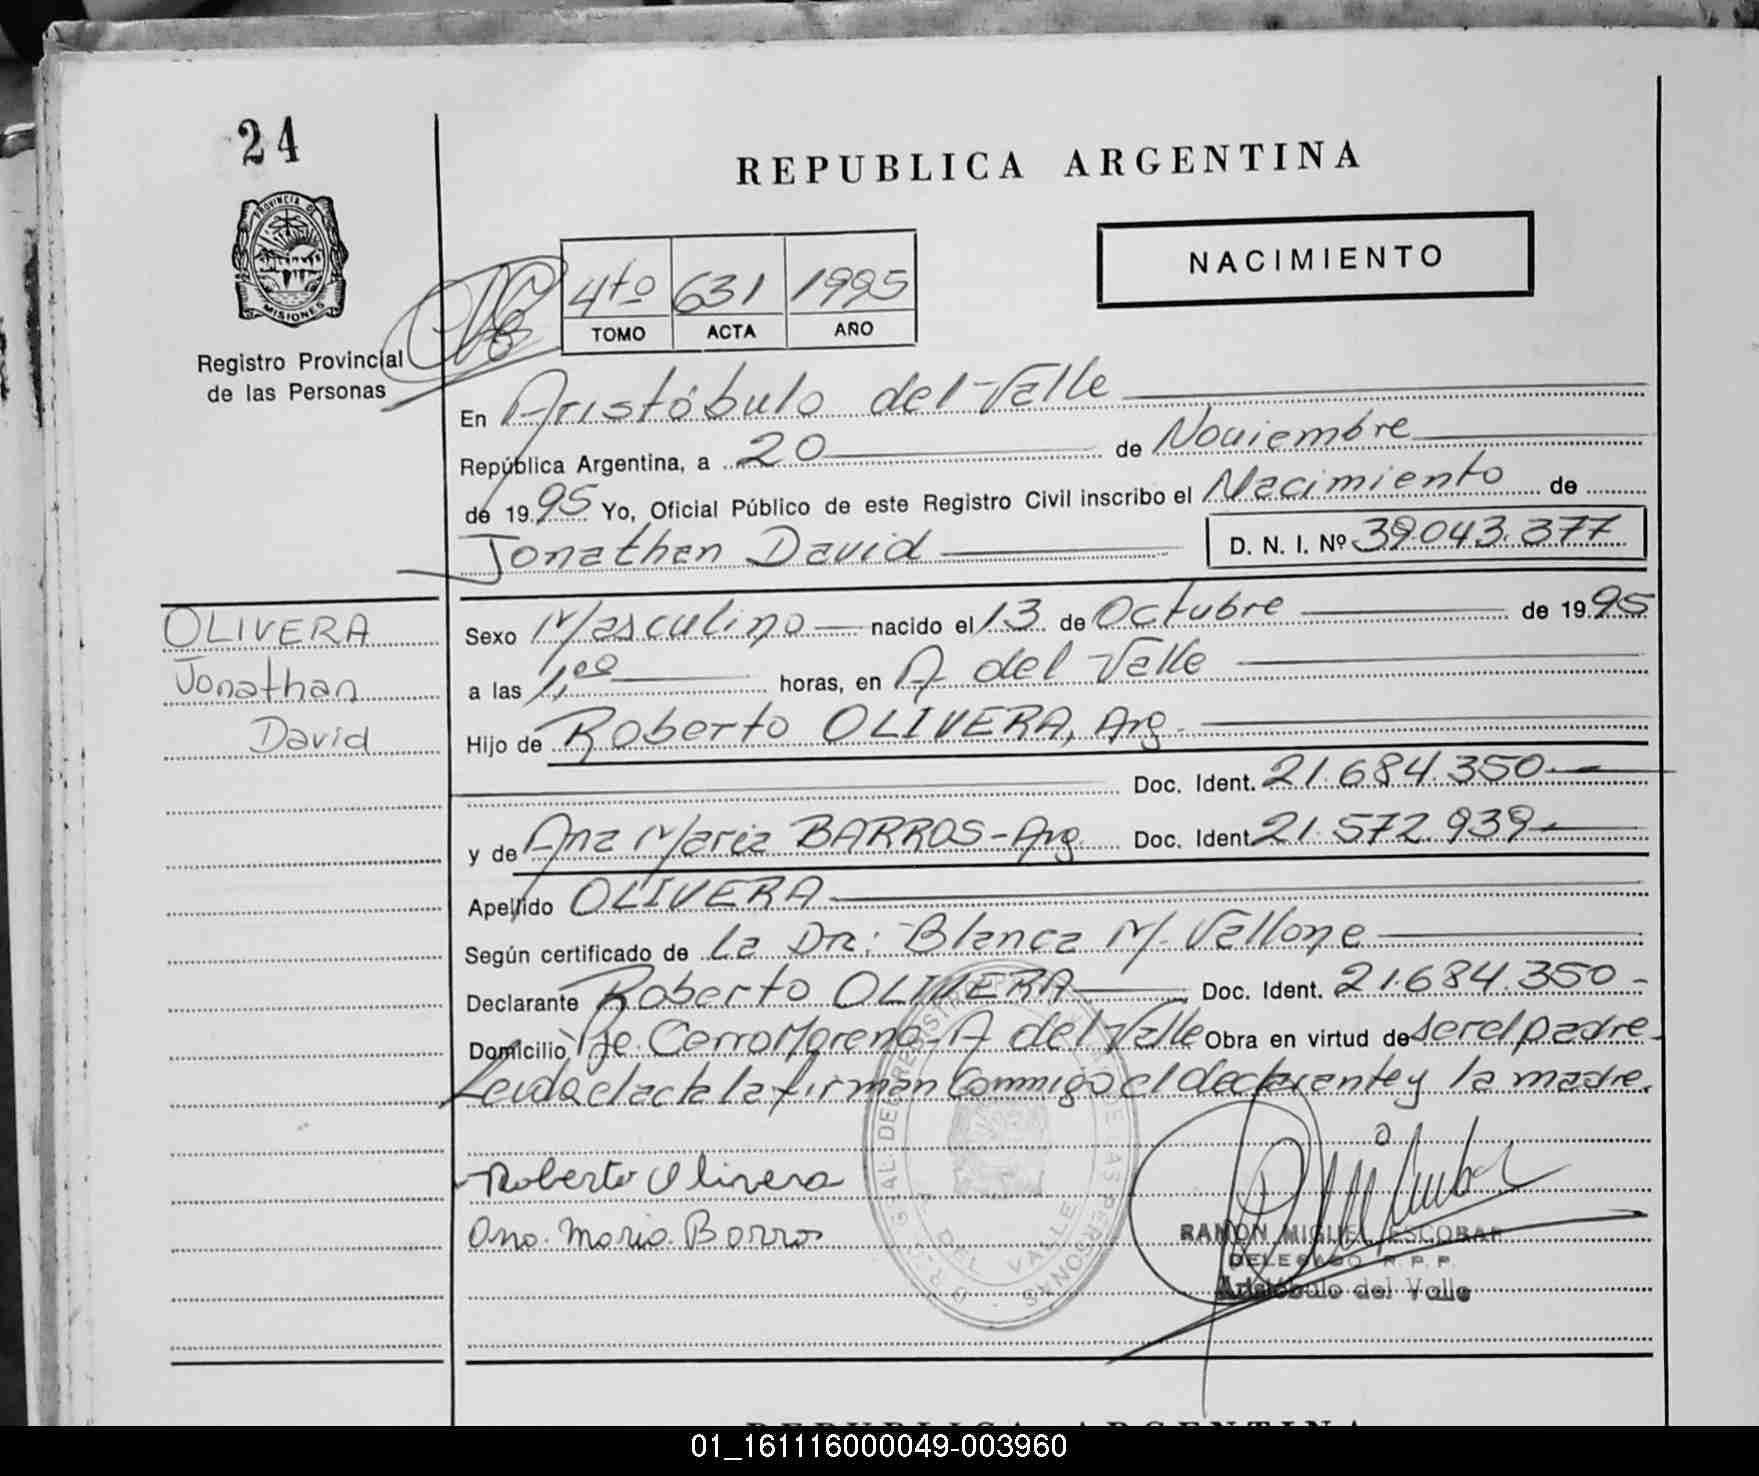 24
REPUBLICA ARGENTINA
PROVINCIA DE
MISIONES
NACIMIENTO
4to 631 1995
TOMO ACTA AÑO
Registro Provincial
de las Personas
En Aristóbulo del Valle
República Argentina, a 20 de Noviembre
de 1995 Yo, Oficial Público de este Registro Civil inscribo el Nacimiento de
Jonathan David D. N. I. Nº 39.043.377
OLIVERA
Jonathan
David
Sexo Masculino nacido el 13 de Octubre de 1995
a las 1,00 horas, en A del Valle
Hijo de Roberto OLIVERA, Arg.
Doc. Ident. 21.684.350
y de Ana Maria BARROS - Arg. Doc. Ident 21.572.939
Apellido OLIVERA
Según certificado de la Dra: Blanca M. Vallone
Declarante Roberto OLIVERA Doc. Ident. 21.684.350 -
Domicilio Pje. Cerro Moreno - A del Valle Obra en virtud de ser el padre -
Leida el acta la firman Conmigo el declarante y la madre.
Roberto Olivera
Ana. Maria. Barros
RAMON MIGUEL ESCOBAR
DELEGADO R. P. P.
Aristóbulo del Valle
REPUBLICA ARGENTINA
01_161116000049-003960